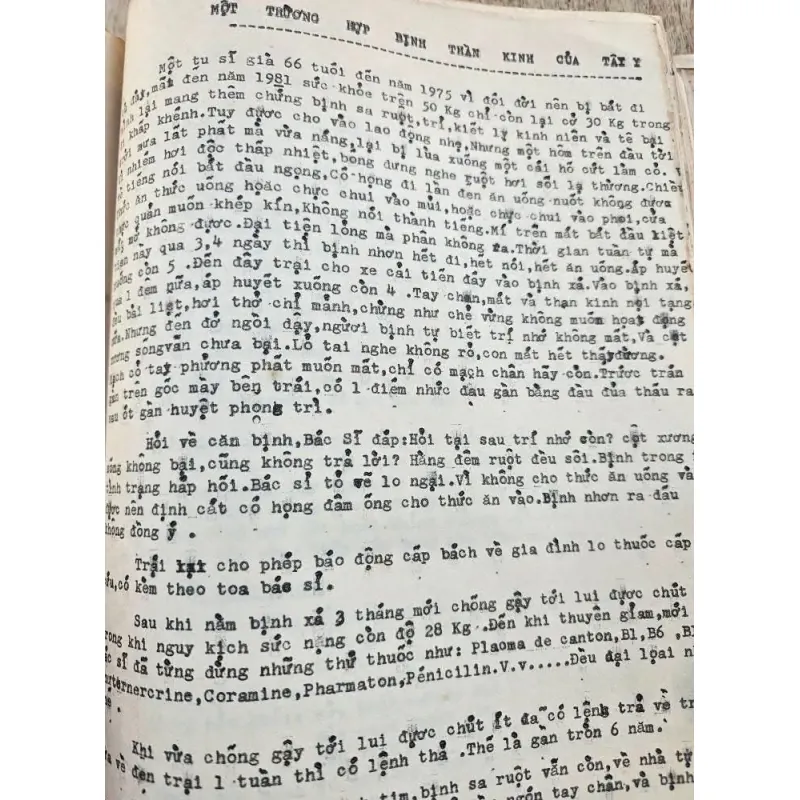 MỘT TRƯỜNG HỢP BỊNH THẦN KINH CỦA TÂY Y
Một tu sĩ già 66 tuổi đến năm 1975 vì đổi đời nên bị bắt đi
đầy,mãi đến năm 1981 sức khỏe trên 50 Kg chỉ còn lại có 30 Kg trong
lại mang thêm chứng bịnh sa ruột,trĩ,kiết lỵ kinh niên và tê bại
khấp khểnh.Tuy được cho vào lao động nhẹ,Nhưng một hôm trên đầu tới
mưa lất phất mà vừa nắng,lại bị lùa xuống một cái hố cứt làm cỏ.
nhiễm hơi độc thấp nhiệt,bỗng dưng nghe ruột hơi sôi lạ thường.Chiều
tiếng nói bắt đầu ngọng,Cổ họng đi lần đến ăn uống nuốt không được
ăn thức uống hoặc chực chui vào mũi,hoặc chực chui vào phổi,cửa
quản muốn khép kín,Không nói thành tiếng.Mí trên mắt bắt đầu liệt
mở không được.Đại tiện lỏng mà phân không ra.Thời gian tuần tự mà
này qua 3,4 ngày thì bịnh nhơn hết đi,hết nói,hết ăn uống.áp huyết
xuống còn 5 .Đến đây trại cho xe cải tiến đẩy vào bịnh xá.Vào bịnh xá,
qua 1 đêm nữa,áp huyết xuống còn 4 .Tay chân,mắt và thần kinh nội tạng
đều bải liệt,hơi thở chỉ mảnh,chừng như chẻ vừng không muốn hoạt động
nữa.Nhưng đến đở ngồi dậy,người bịnh tự biết trí nhớ không mất,Và cột
xương sốngvẫn chưa bại.Lổ tai nghe không rỏ,con mắt hết thấyđường.
Mạch cổ tay phưởng phất muốn mất,chỉ có mạch chân hãy còn.Trước trán
gần trên gốc mày bên trái,có 1 điểm nhức đầu gần bằng đầu đủa thấu ra
sau ót gần huyệt phong trì.
Hỏi về căn bịnh,Bác Sĩ đáp:Hỏi tại sau trí nhớ còn? cột xương
sống không bại,cũng không trả lời? Hằng đêm ruột đều sôi.Bịnh trong
tình trạng hấp hối.Bác sĩ tỏ vẽ lo ngại.Vì không cho thức ăn uống vào
được nên định cắt cổ họng đâm ống cho thức ăn vào.Bịnh nhơn ra dấu
không đồng ý .
Trại cho phép báo động cấp bách về gia đình lo thuốc cấp
cứu,có kèm theo toa bác sĩ.
Sau khi nằm bịnh xá 3 tháng mới chống gậy tới lui được chút
trong khi nguy kịch sức nặng còn độ 28 Kg .Đến khi thuyên giảm,mới
bác sĩ đã từng dùng những thứ thuốc như: Plaoma de canton,B1,B6 ,B1
Coramine,Pharmaton,Pénicilin.V.v.....Đều đại loại
Khi vừa chống gậy tới lui được chút ít đã có lệnh trả về
về đến trại 1 tuần thì có lệnh thả .Thế là gần tròn 6 năm.
tim,bịnh sa ruột vẫn còn,về nhà tự
ngón tay chân,và bịnh